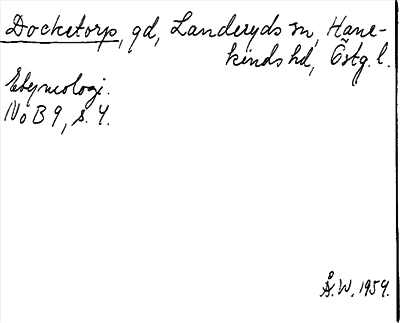 Docketorp, gd, Landeryds sn, Hane-
kinds hd, Östg. l.
Etymologi.
NoB 9, s. 4.
Å.W. 1959.